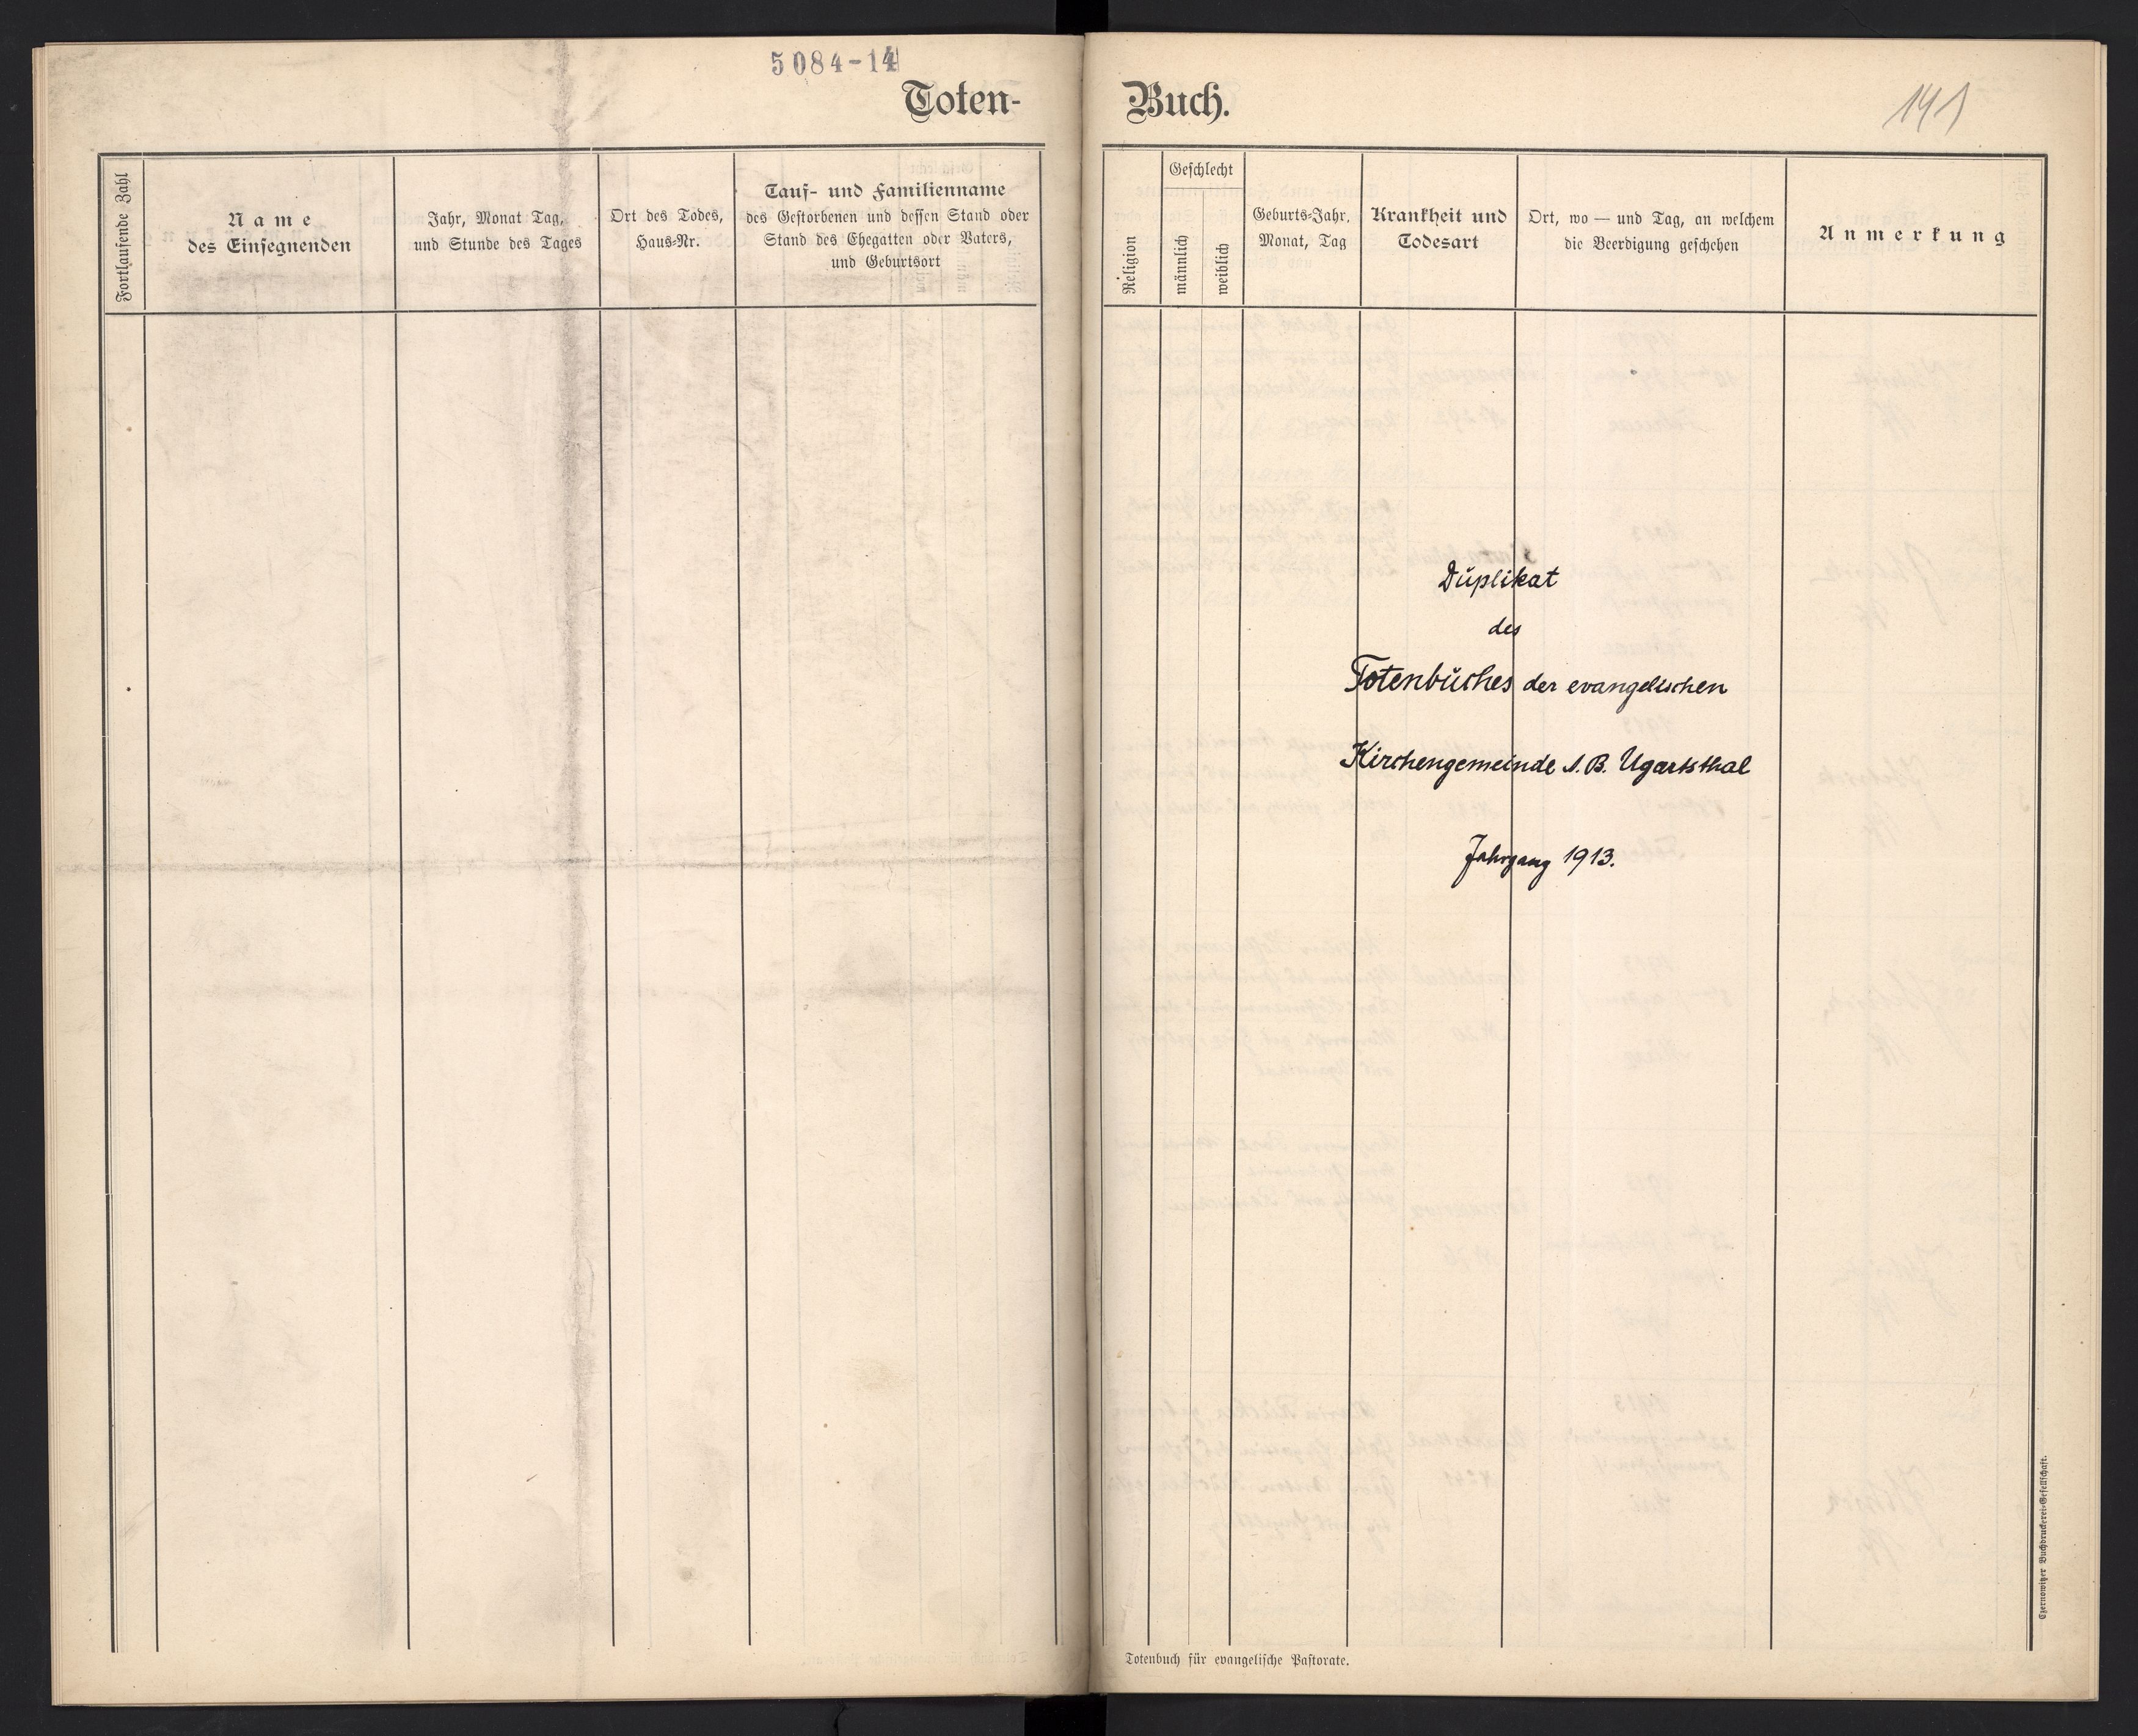 5084-14
Toten-
Fortlaufende Zahl
Name
des Einsegnenden
Jahr, Monat Tag,
und Stunde des Tages
Ort des Todes,
Haus-Nr.
Tauf- und Familienname
des Gestorbenen und dessen Stand oder
Stand des Ehegatten oder Vaters,
und Geburtsort
Buch.
141
Religion
Geschlecht
männlich
weiblich
Geburts-Jahr,
Monat, Tag
Krankheit und
Todesart
Ort, wo — und Tag, an welchem
die Beerdigung geschehen
Anmerkung
Duplikat
des
Totenbuches der evangelischen
Kirchengemeinde A. B. Ugartsthal
Jahrgang 1913.
Totenbuch für evangelische Pastorate.
Czernowitzer Buchdruckerei-Gesellschaft.